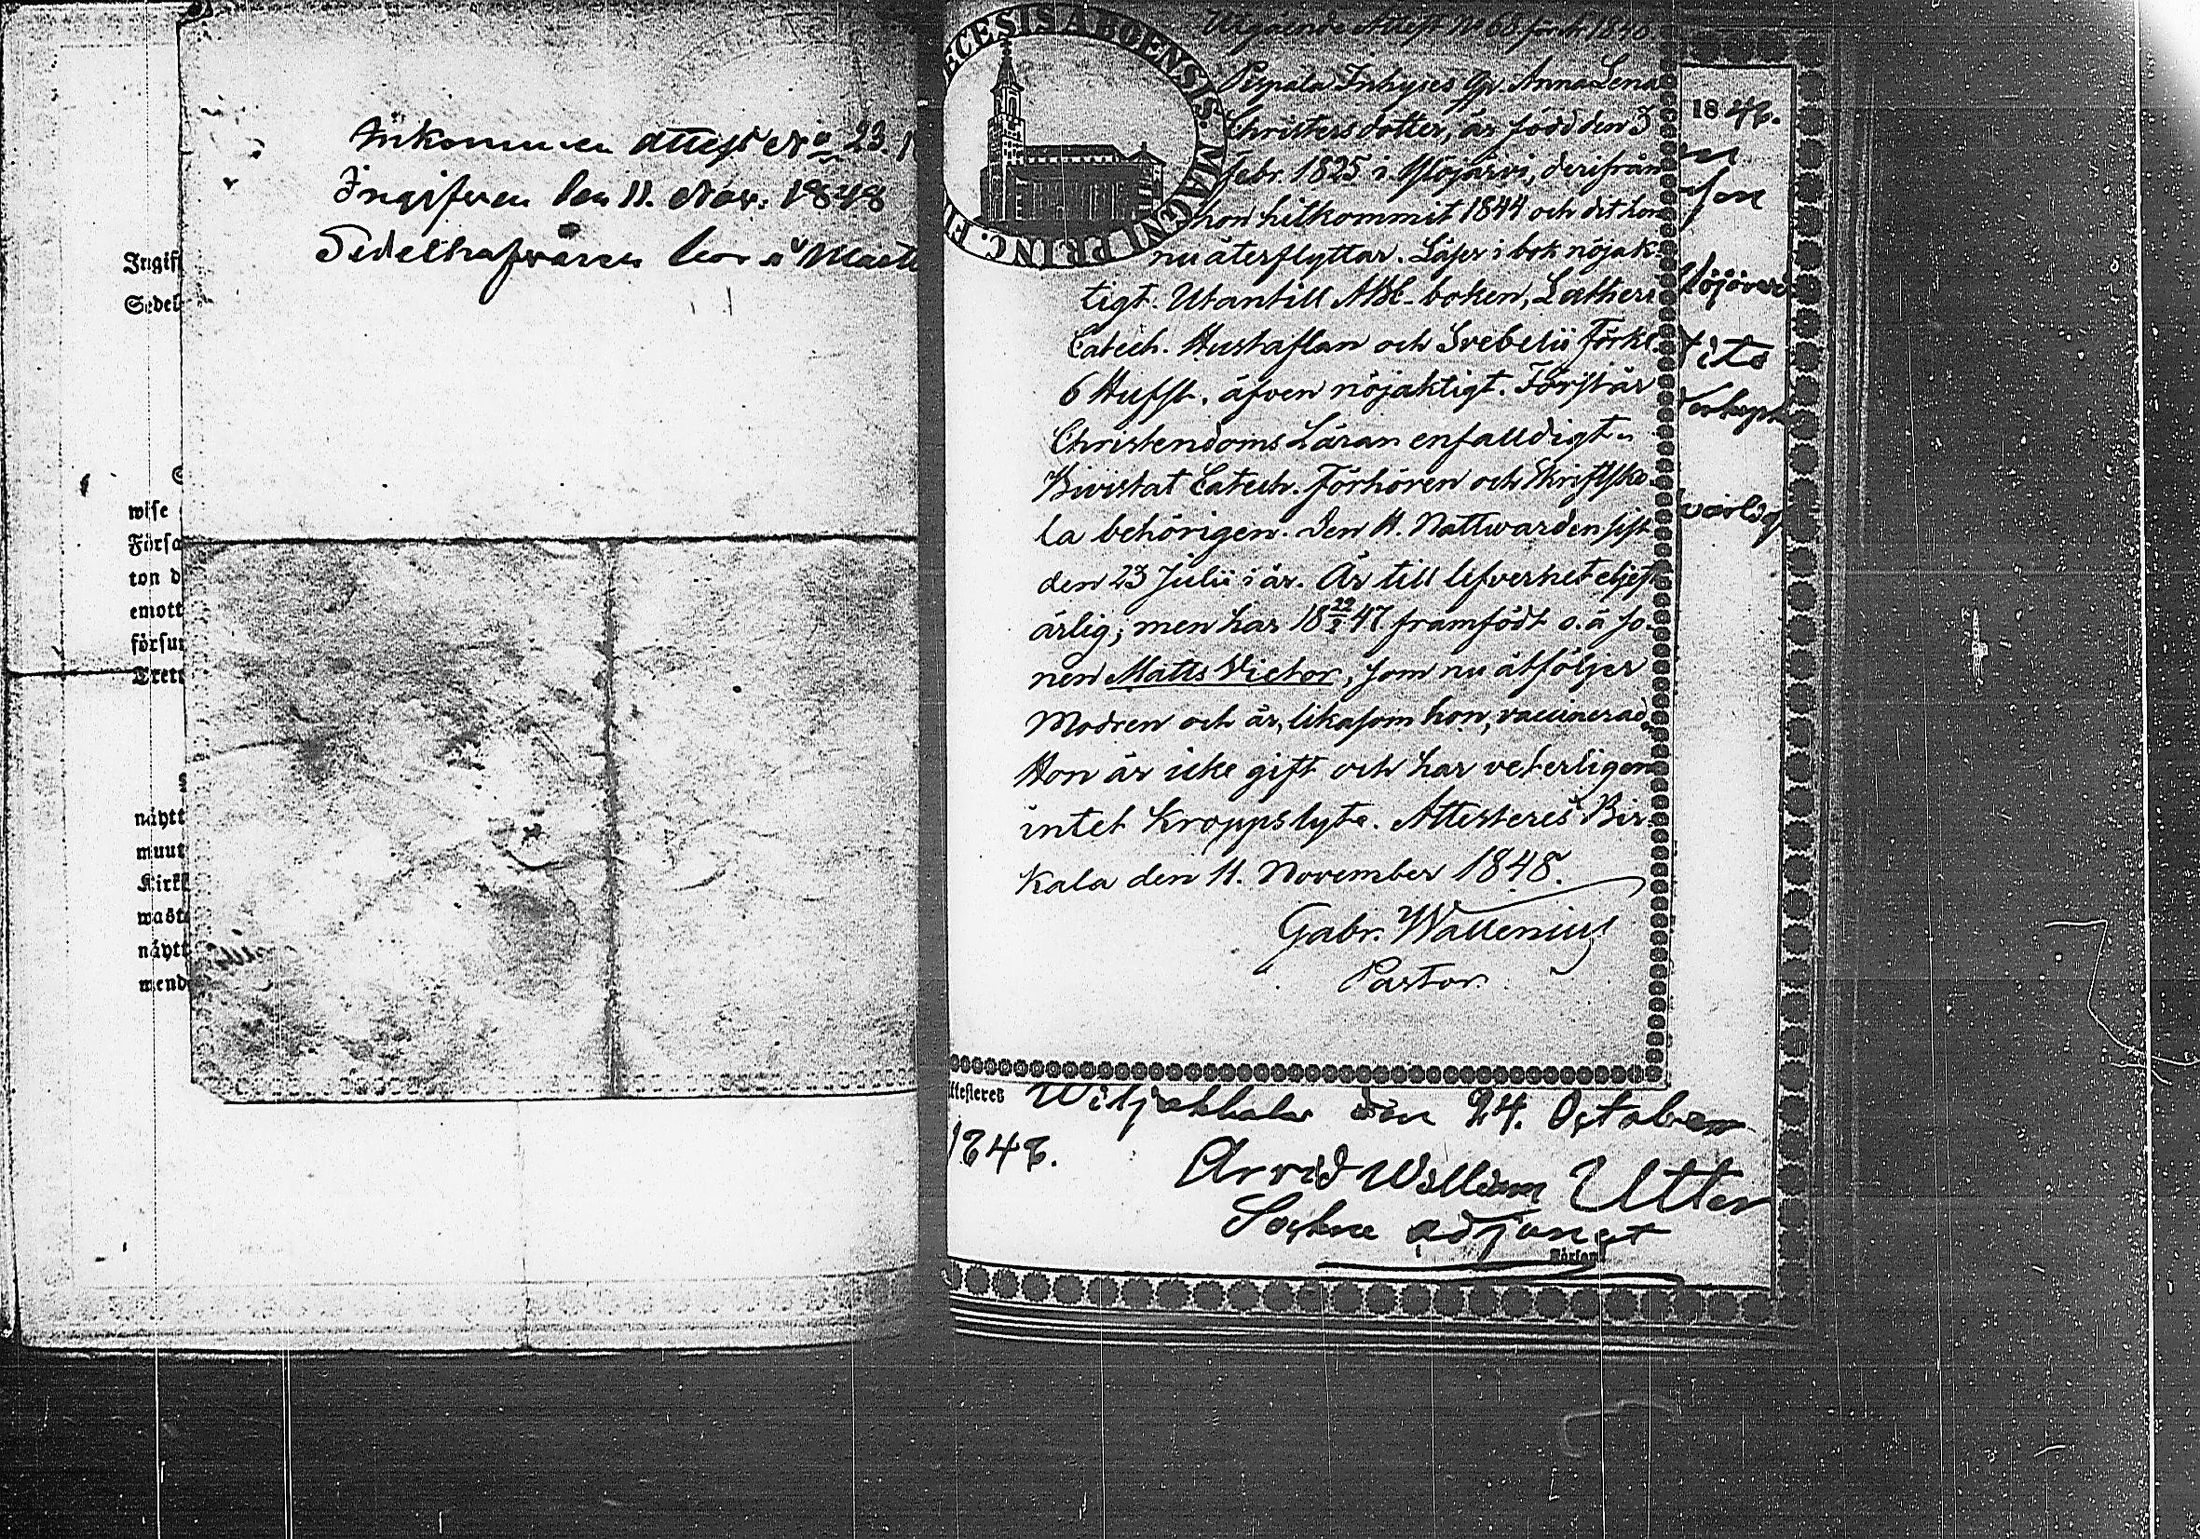 Inkommen attest No 23.
Ingifven den 11. Nov. 1848
Sedelhafvaren bor å
Ingif
Sedel
wise
Förfa
ton d
emott
försum
Trett
näytt
muut
Kirkk
wast
näytt
mend
ECESIS ABOENSIS. MAGNI PRINC. FI
Utgående Attest No 63 för år 1848
Pispala Inhyses Qp. Anna Lena
Christersdotter, är född den 3
febr. 1825 i Ylöjärvi, derifrån
hon hitkommit 1844 och dit hon
nu återflyttar. Läser i bok nöjak-
tigt. Utantill ABC-boken, Lutheri
Catech. Hustaflan och Svebelii Förkl.
6 Hufst. äfven nöjaktigt. Förstår
Christendoms Läran enfalldigt.
Bivistat Catech. Förhören och Skriftsko-
la behörigen. Den H. Nattwarden sist
den 23 Julii i år. Är till lefvernet eljest
ärlig, men har 18 22/2 47 framfödt o. ä. so-
nen Matts Victor, som nu åtföljer
Modren och är, likasom hon, vaccinerad.
Hon är icke gift och har veterligen
intet Kroppslyte. Attesteres Bir-
kala den 11. November 1848.
Gabr. Wallenius
Pastor.
1848.
ttesteres Wiljakkala den 24. October
1848.
Arvid William Utter
Sockne adjunct